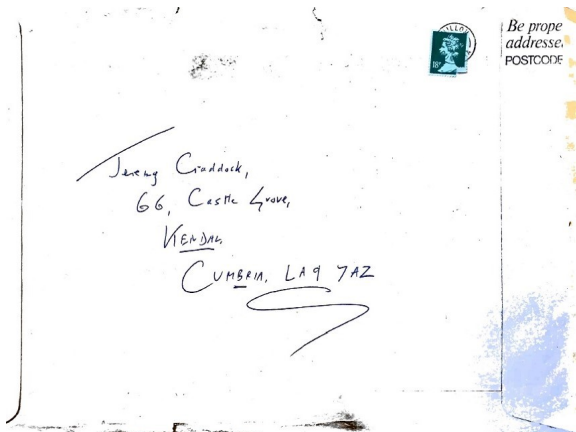 Be prope
addresse
POSTCODE
18P
Jeremy Craddock,
66, Castle Grove,
KENDAL
CUMBRIA, LA9 7AZ